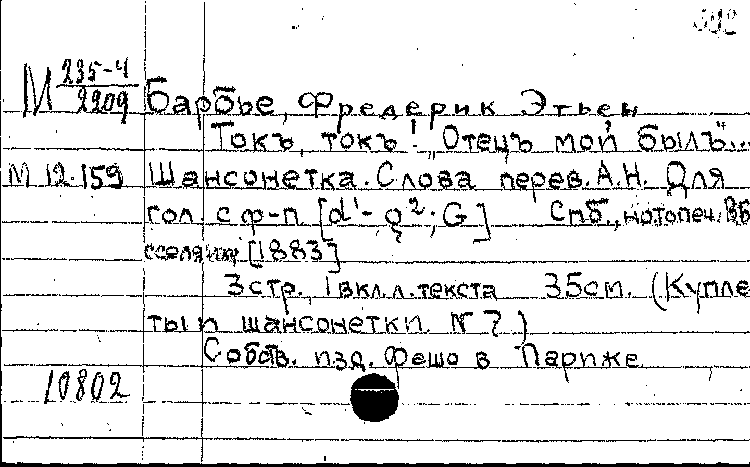 М 235-4/2209 Барбье, Фредерик Этьен
Токъ, токъ! „Отецъ мой былъ"...
М 12.159 Шансонетка. Слова перев. А.Н. Для
гол. с ф-п. [d¹-g²; G] Спб., нотопеч.
[1883]
3 стр., 1 вкл. л. текста 35см. (Купле
ты и шансонетки. № 7)
Собств. изд. Фешо в Париже
10802